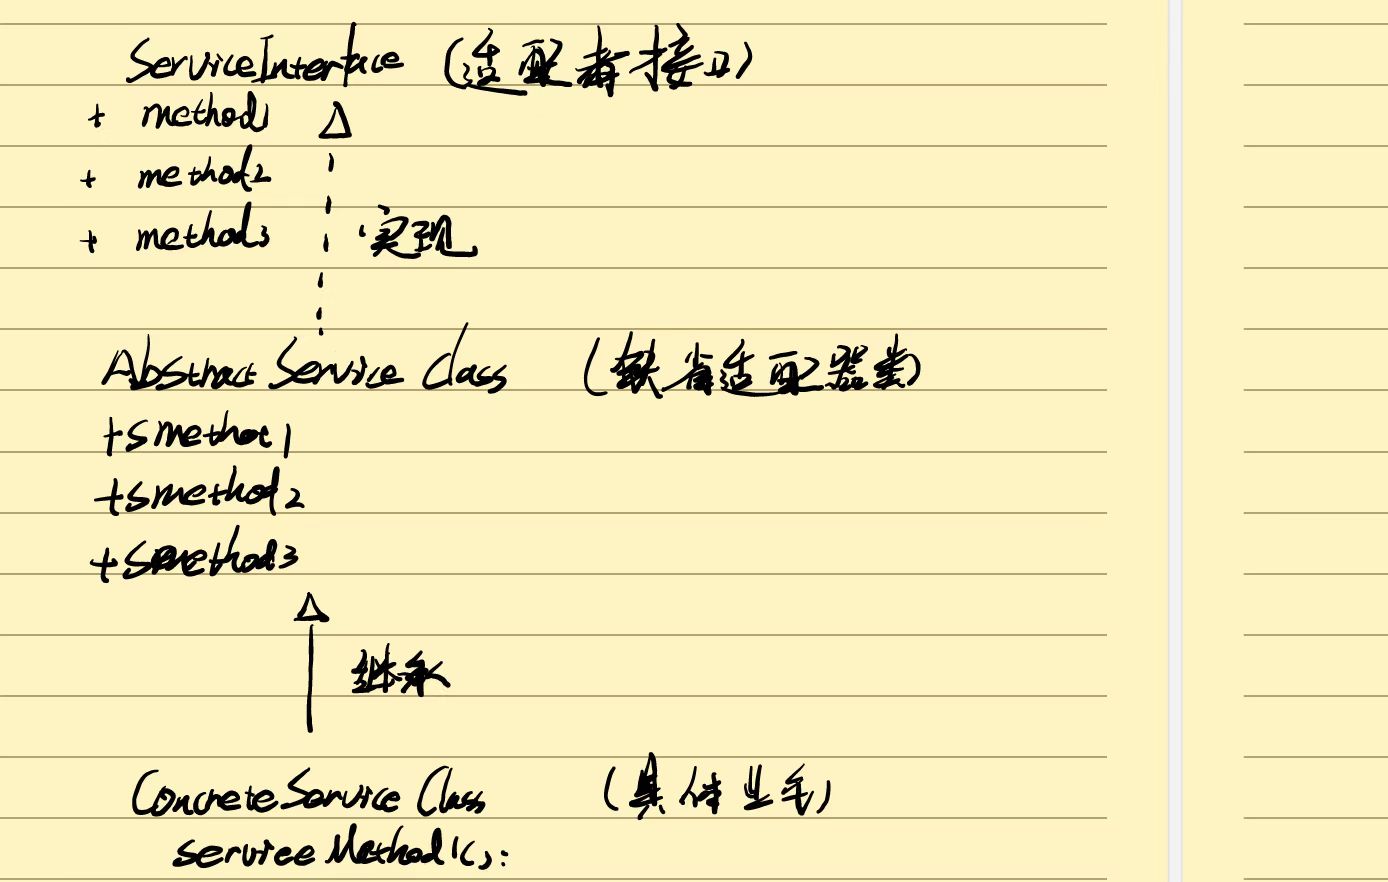 ServiceInterface (适配者接口)
+ method1
+ method2
+ method3 实现
Abstract Service Class (缺省适配器类)
+smethod1
+smethod2
+smethod3
继承
ConcreteService Class (具体业务)
serviceMethod1():